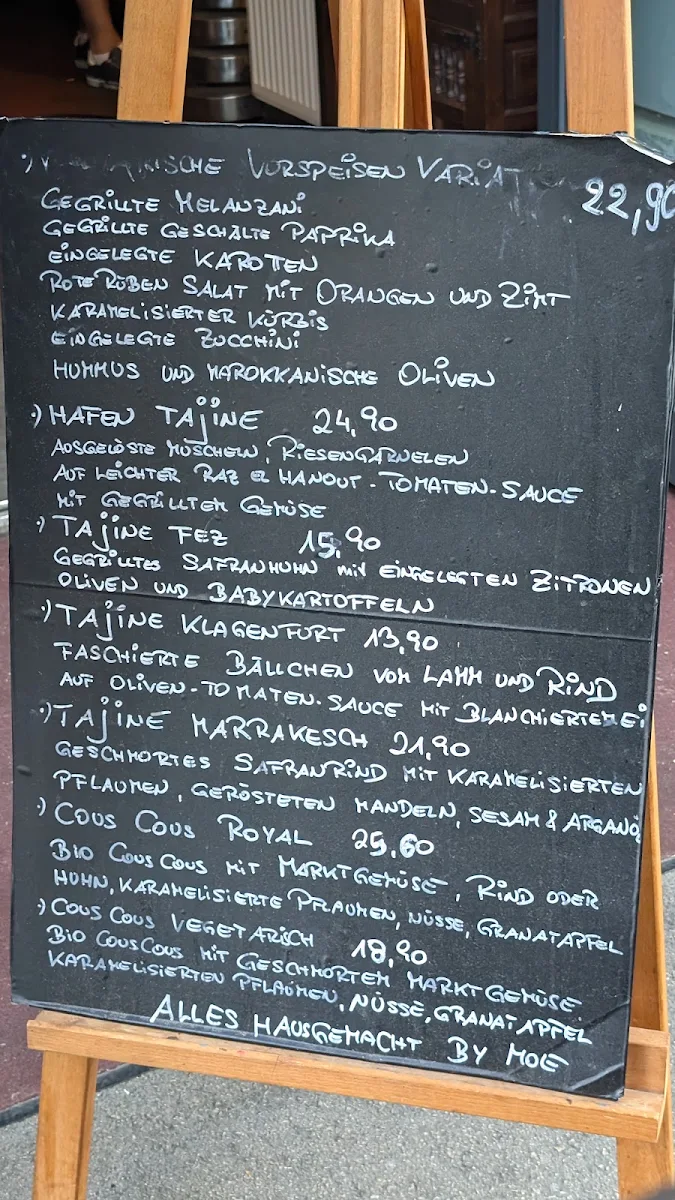 VORSPEISEN
22,90
GEGRILLTE MELANZANI
GEGRILLTE GESCHÄLTE PAPRIKA
EINGELEGTE KAROTTEN
ROTE RÜBEN SALAT MIT ORANGEN UND ZIMT
KARAMELISIERTER KÜRBIS
EINGELEGTE ZUCCHINI
HUMMUS UND MAROKKANISCHE OLIVEN
·) HAFEN TAJINE 24,90
AUSGELÖSTE MUSCHELN, RIESENGARNELEN
AUF LEICHTER RAZ EL HANOUT-TOMATEN-SAUCE
MIT GEGRILLTEM GEMÜSE
·) TAJINE FEZ 15,90
GEGRILLTES SAFRANHUHN MIT EINGELEGTEN ZITRONEN
OLIVEN UND BABYKARTOFFELN
·) TAJINE KLAGENFURT 13,90
FASCHIERTE BÄLLCHEN VOM LAMM UND RIND
AUF OLIVEN-TOMATEN-SAUCE MIT BLANCHIERTEM EI
·) TAJINE MARRAKESCH 21,90
GESCHMORTES SAFRANRIND MIT KARAMELISIERTEN
PFLAUMEN, GERÖSTETEN MANDELN, SESAM & ARGANÖL
·) COUS COUS ROYAL 25,60
BIO COUS COUS MIT MARKTGEMÜSE, RIND ODER
HUHN, KARAMELISIERTE PFLAUMEN, NÜSSE, GRANATAPFEL
·) COUS COUS VEGETARISCH 18,90
BIO COUSCOUS MIT GESCHMORTEM MARKTGEMÜSE
KARAMELISIERTEN PFLAUMEN, NÜSSE, GRANATAPFEL
ALLES HAUSGEMACHT BY MOE